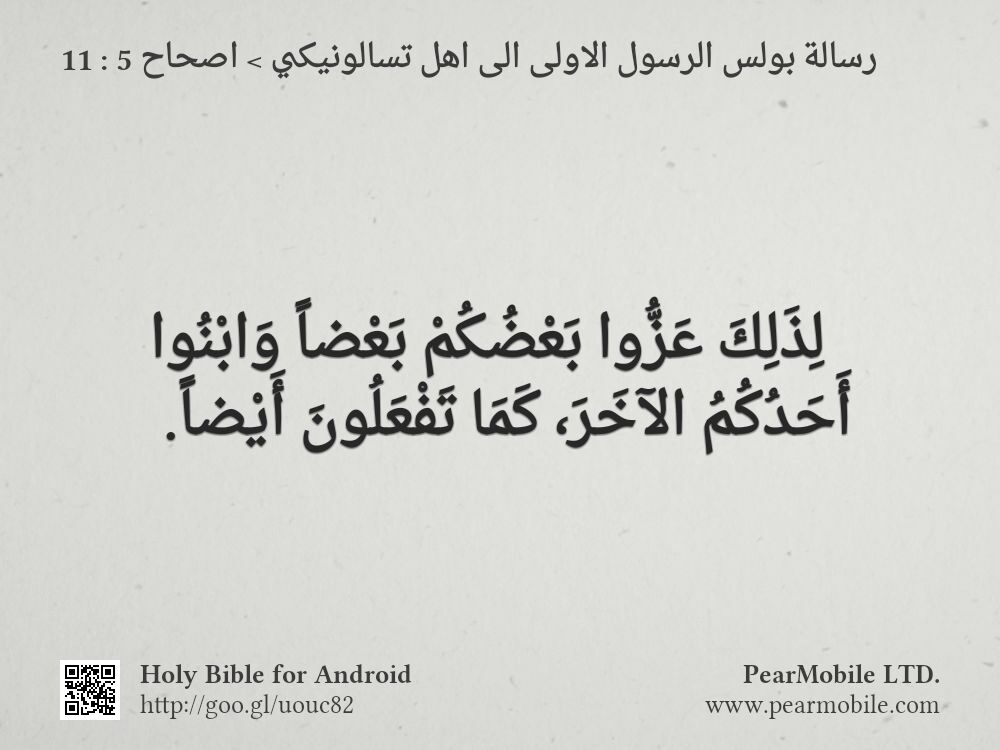 رسالة بولس الرسول الاولى الى اهل تسالونيكي > اصحاح 5 : 11
لِذَلِكَ عَزُّوا بَعْضُكُمْ بَعْضاً وَابْنُوا
أَحَدُكُمُ الآخَرَ، كَمَا تَفْعَلُونَ أَيْضاً.
Holy Bible for Android
http://goo.gl/uouc82
PearMobile LTD.
www.pearmobile.com